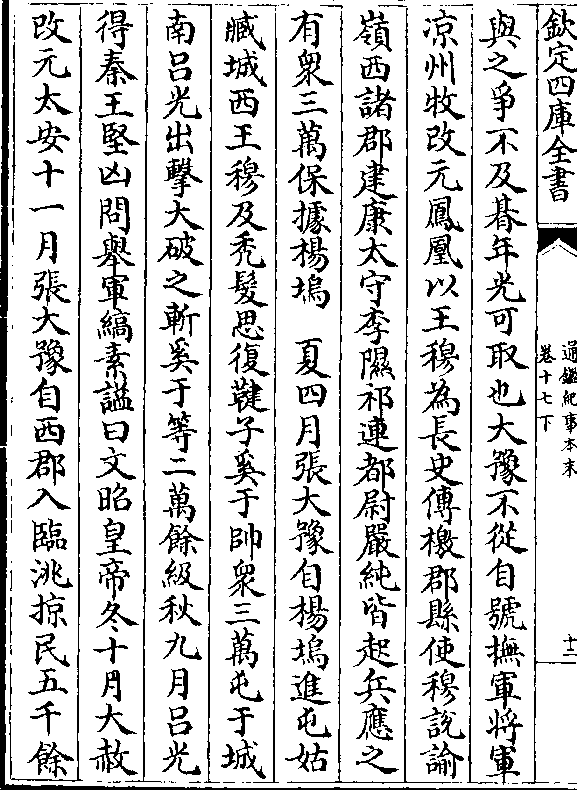 欽定四庫全書
通鑑紀事本末
卷十七下
十二
與之爭不及朞年光可取也大豫不從自號撫軍將軍
凉州牧改元鳳凰以王穆為長史傳檄郡縣使穆說諭
嶺西諸郡建康太守李隰祁連都尉嚴純皆起兵應之
有衆三萬保據楊塢　夏四月張大豫自楊塢進屯姑
臧城西王穆及秃髮思復鞬子奚于帥衆三萬屯于城
南吕光出擊大破之斬奚于等二萬餘級秋九月吕光
得秦王堅凶問舉軍縞素諡曰文昭皇帝冬十月大赦
改元太安十一月張大豫自西郡入臨洮掠民五千餘